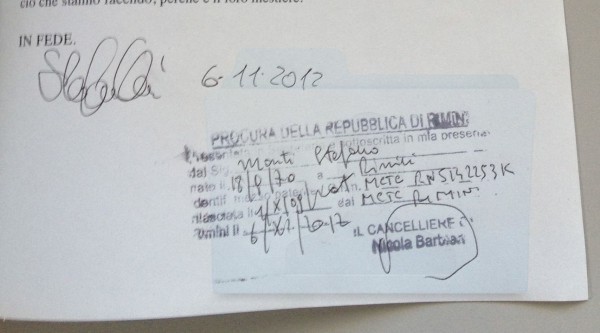 ciò che stanno facendo, perché è il loro mestiere.
IN FEDE.
6-11-2012
PROCURA DELLA REPUBBLICA DI RIMINI
sottoscritta in mia presenza
dal Sig. Monti Stefano
nato il 18/9/70 a Rimini
identif. MCTC RN5142253K
rilasciata il dal MCTC RIMINI
Rimini lì 6/XI/2012
IL CANCELLIERE
Nicola Bartolani